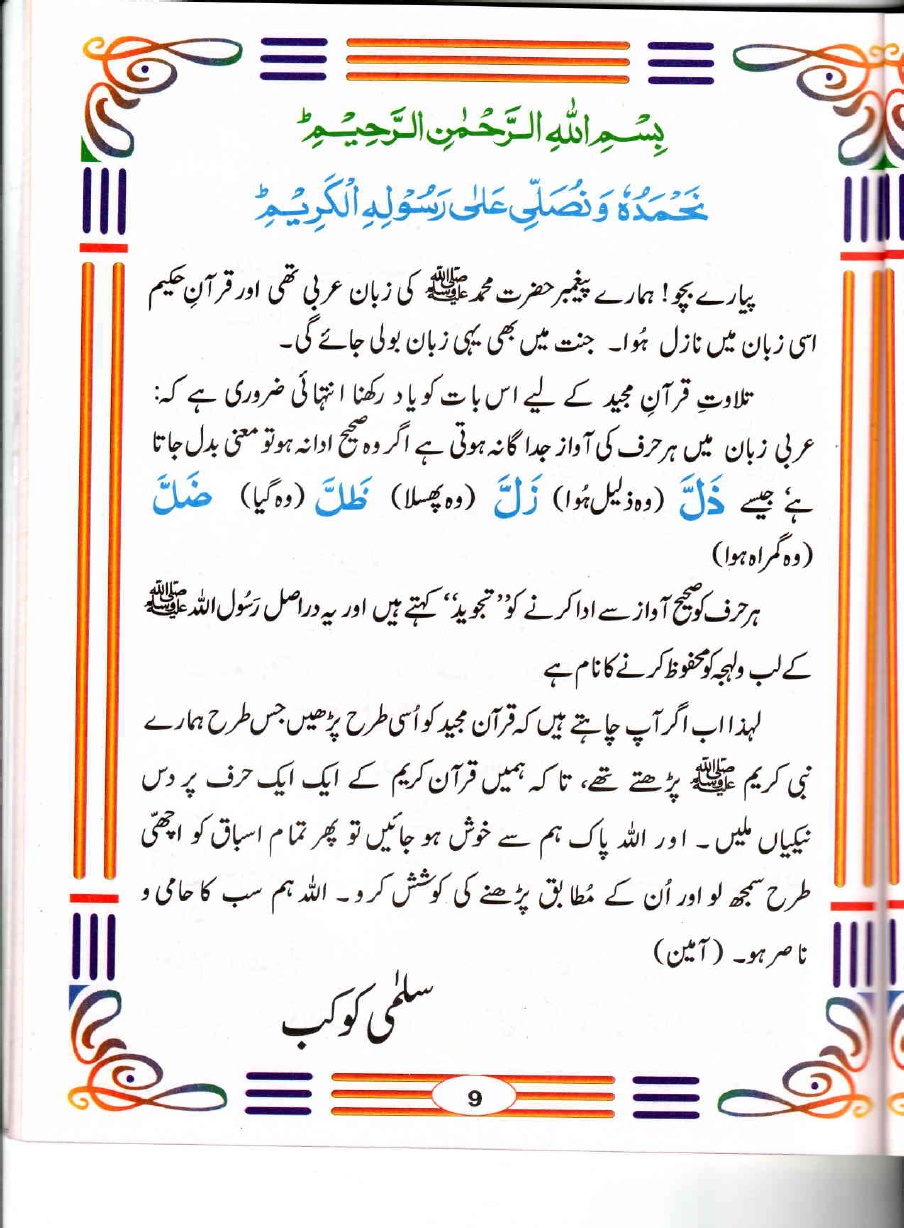 بِسْمِ اللهِ الرَّحْمٰنِ الرَّحِيْمِ ؕ
نَحْمَدُهٗ وَ نُصَلِّيْ عَلٰى رَسُوْلِهِ الْكَرِيْمِ ؕ
پیارے بچو! ہمارے پیغمبر حضرت محمد ﷺ کی زبان عربی تھی اور قرآنِ حکیم
اسی زبان میں نازل ہُوا۔ جنت میں بھی یہی زبان بولی جائے گی۔
تلاوتِ قرآنِ مجید کے لیے اس بات کو یاد رکھنا انتہائی ضروری ہے کہ:
عربی زبان میں ہر حرف کی آواز جداگانہ ہوتی ہے اگر وہ صحیح ادا نہ ہو تو معنی بدل جاتا
ہے، جیسے ذَلَّ (وہ ذلیل ہُوا) زَلَّ (وہ پھسلا) ظَلَّ (وہ گیا) ضَلَّ
(وہ گمراہ ہوا)
ہر حرف کو صحیح آواز سے ادا کرنے کو ”تجوید“ کہتے ہیں اور یہ دراصل رَسُول اللہ ﷺ
کے لب ولہجہ کو محفوظ کرنے کا نام ہے
لہذا اب اگر آپ چاہتے ہیں کہ قرآن مجید کو اُسی طرح پڑھیں جس طرح ہمارے
نبی کریم ﷺ پڑھتے تھے، تاکہ ہمیں قرآن کریم کے ایک ایک حرف پر دس
نیکیاں ملیں۔ اور اللہ پاک ہم سے خوش ہو جائیں تو پھر تمام اسباق کو اچھّی
طرح سمجھ لو اور اُن کے مُطابق پڑھنے کی کوشش کرو۔ اللہ ہم سب کا حامی و
ناصر ہو۔ (آمین)
سلمٰی کوکب
9